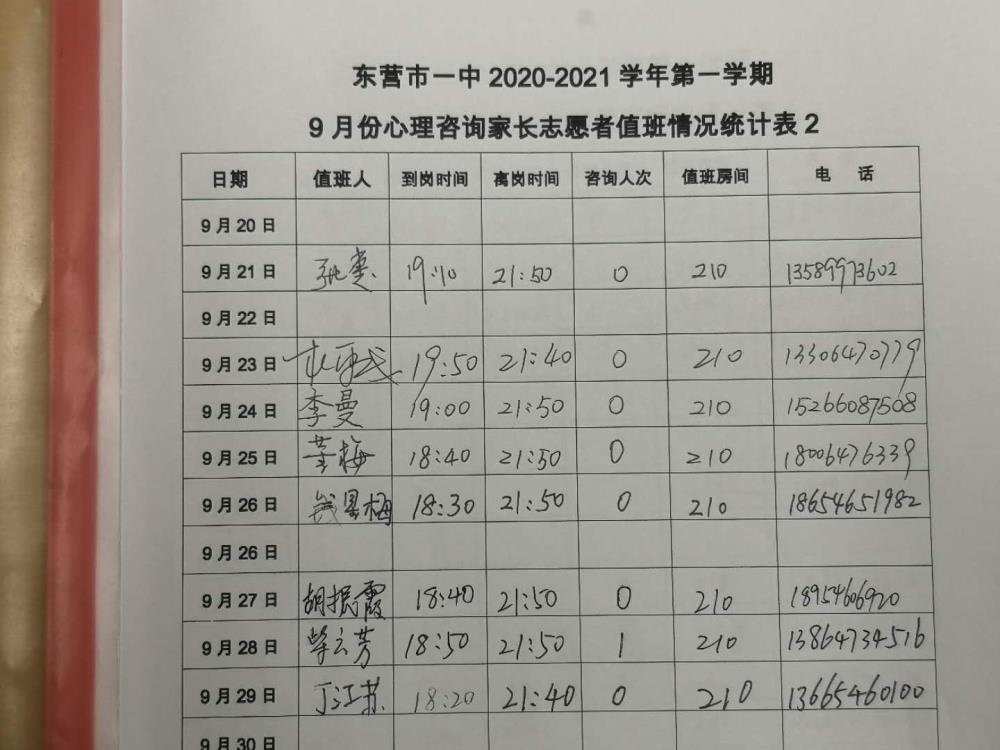 东营市一中 2020-2021 学年第一学期
9 月份心理咨询家长志愿者值班情况统计表 2
日期 值班人 到岗时间 离岗时间 咨询人次 值班房间 电 话
9 月 20 日
9 月 21 日 19:10 21:50 0 210 13589973602
9 月 22 日
9 月 23 日 19:50 21:40 0 210 13306470779
9 月 24 日 李曼 19:00 21:50 0 210 15266087508
9 月 25 日 董梅 18:40 21:50 0 210 18006476339
9 月 26 日 18:30 21:50 0 210 18654651982
9 月 26 日
9 月 27 日 胡振霞 18:40 21:50 0 210 18954606920
9 月 28 日 18:50 21:50 1 210 13864734516
9 月 29 日 丁江苏 18:20 21:40 0 210 13665460100
9 月 30 日